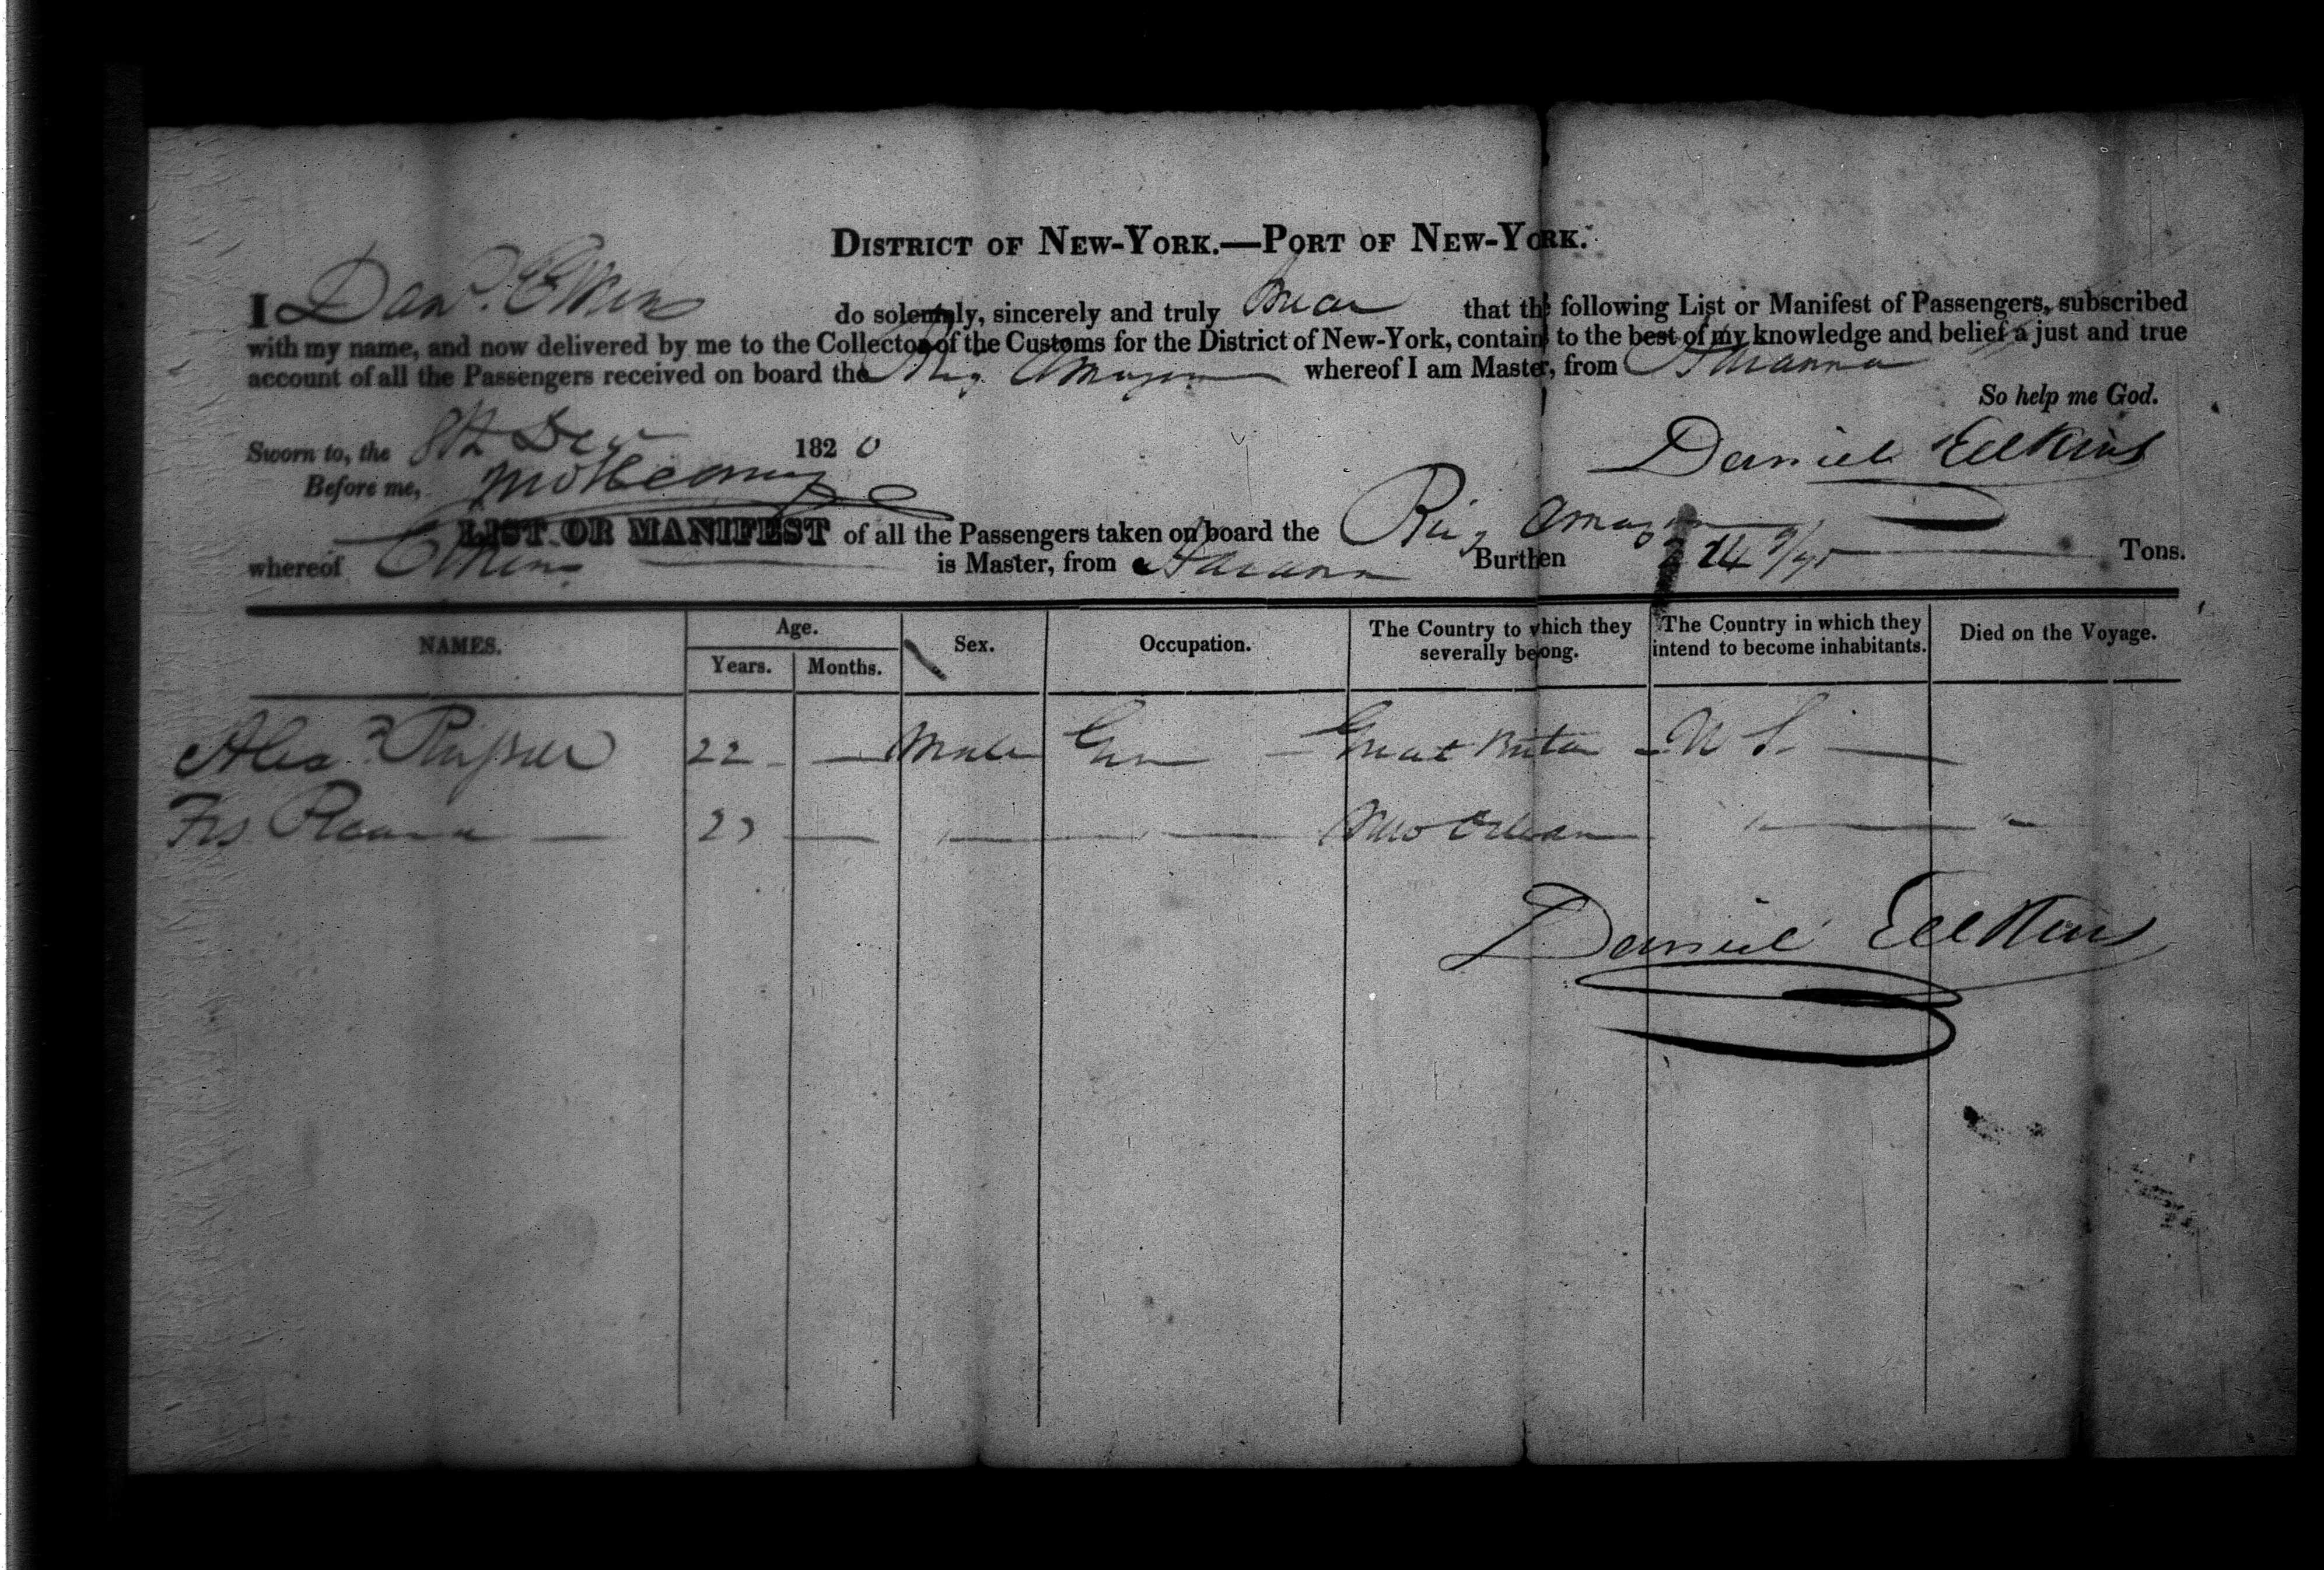 DISTRICT OF NEW-YORK.—PORT OF NEW-YORK.
I Danl. Elkins do solemnly, sincerely and truly swear that the following List or Manifest of Passengers, subscribed
with my name, and now delivered by me to the Collector of the Customs for the District of New-York, contains to the best of my knowledge and belief a just and true
account of all the Passengers received on board the Brig Amazon whereof I am Master, from Havanna
So help me God.
Sworn to, the 8th Decr 1820
Daniel Eelkins
Before me,
LIST OR MANIFEST of all the Passengers taken on board the Brig Amazon
whereof Elkins is Master, from Havanna Burthen Tons.
NAMES. Age. Years. Months. Sex. Occupation. The Country to which they severally belong. The Country in which they intend to become inhabitants. Died on the Voyage.
Alexr 22 — Male Great Britain U S. —
Frs 23 — " — " — New Orleans " — " —
Daniel Eelkins